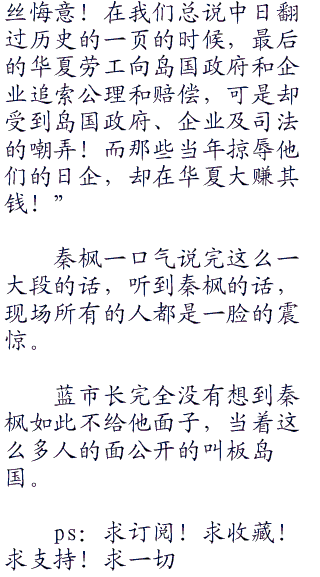 丝悔意！在我们总说中日翻
过历史的一页的时候，最后
的华夏劳工向岛国政府和企
业追索公理和赔偿，可是却
受到岛国政府、企业及司法
的嘲弄！而那些当年掠辱他
们的日企，却在华夏大赚其
钱！”
秦枫一口气说完这么一
大段的话，听到秦枫的话，
现场所有的人都是一脸的震
惊。
蓝市长完全没有想到秦
枫如此不给他面子，当着这
么多人的面公开的叫板岛
国。
ps：求订阅！求收藏！
求支持！求一切